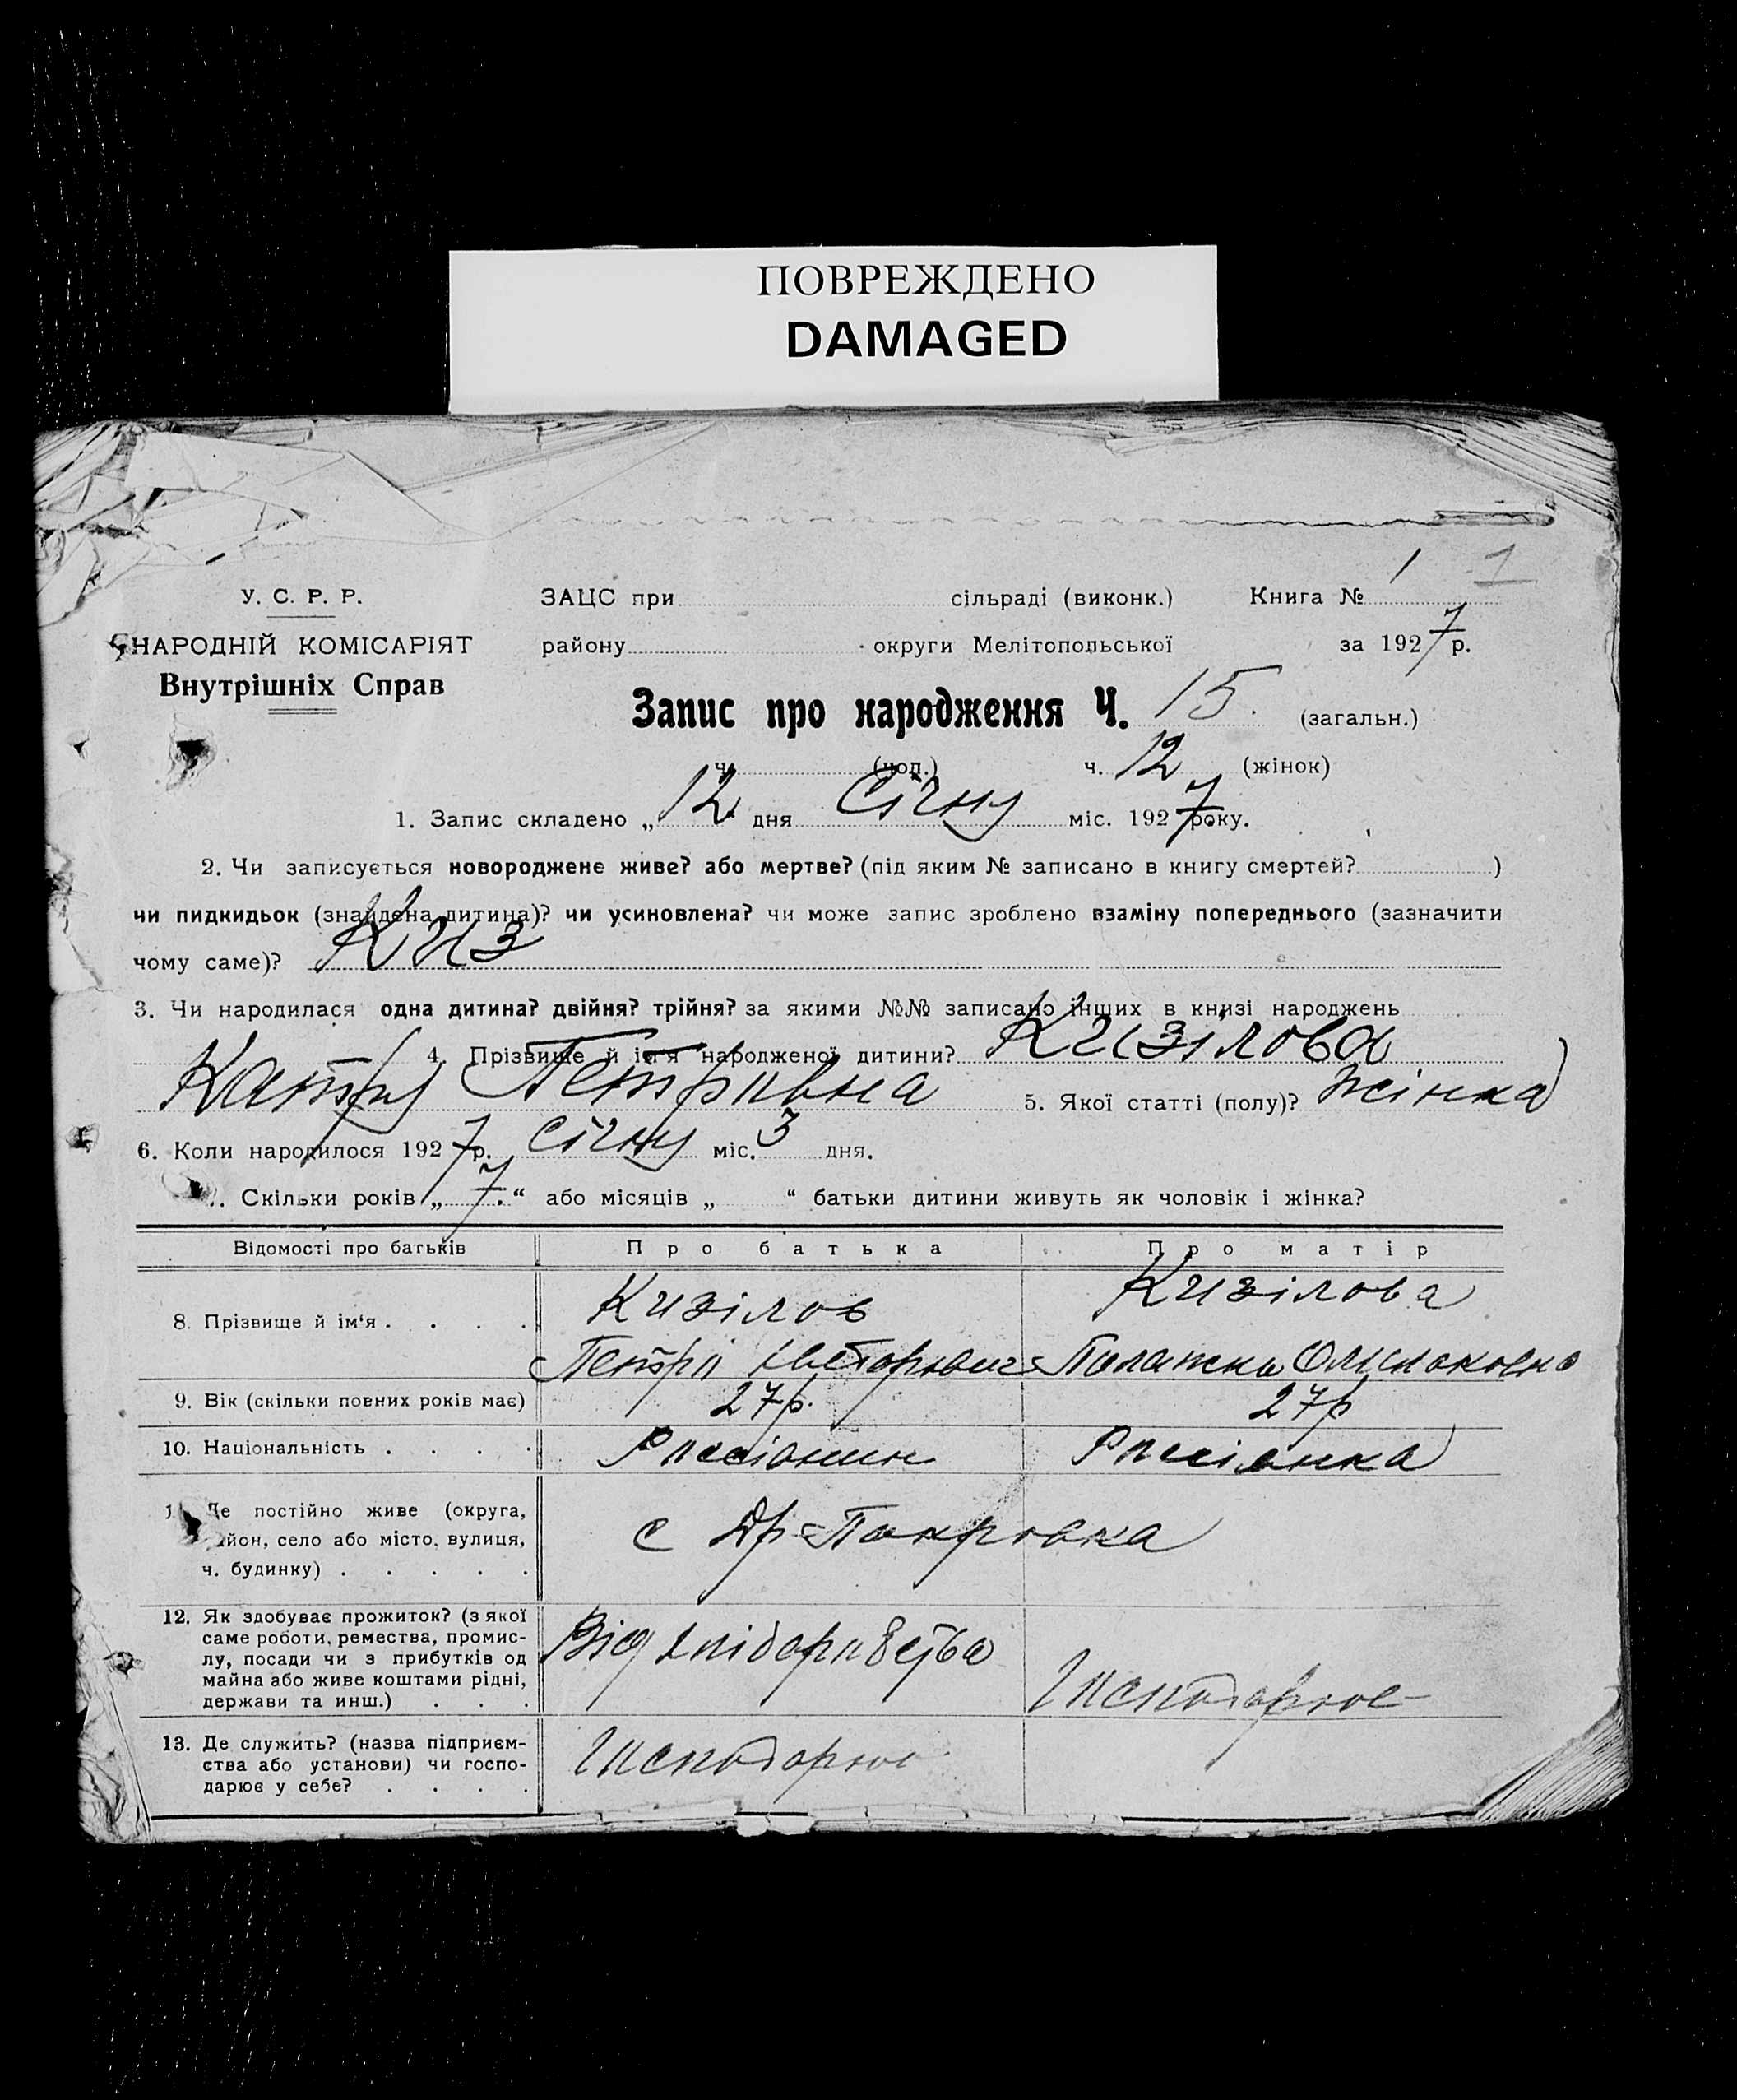 ПОВРЕЖДЕНО
DAMAGED
1 1
У. С. Р. Р. ЗАЦС при сільраді (виконк.) Книга №
НАРОДНІЙ КОМІСАРІЯТ району округи Мелітопольської за 1927 р.
Внутрішніх Справ
Запис про народження Ч. 15. (загальн.)
ч. (чол.) ч. 12 (жінок)
1. Запис складено „12 дня Січну міс. 1927 року.
2. Чи записується новороджене живе? або мертве? (під яким № записано в книгу смертей? )
чи пидкидьок (знайдена дитина)? чи усиновлена? чи може запис зроблено взаміну попереднього (зазначити
чому саме)? Киз
3. Чи народилася одна дитина? двійня? трійня? за якими №№ записано інших в книзі народжень
4. Прізвище й ім'я народженої дитини? Кизілова
Катря Петрівна 5. Якої статті (полу)? жінка
6. Коли народилося 1927 р. Січну міс. 3 дня.
Скільки років „7.“ або місяців „ “ батьки дитини живуть як чоловік і жінка?
Відомості про батьків Про батька Про матір
8. Прізвище й ім'я . . . . Кизілов Кизілова
Петрі
9. Вік (скільки повних років має) 27р. 27р
10. Національність . . . . Рассіанин Рассіанка
Де постійно живе (округа,
район, село або місто, вулиця, с Др-Покровка
ч. будинку) . . . . .
12. Як здобуває прожиток? (з якої
саме роботи, ремества, промис-
лу, посади чи з прибутків од Від
майна або живе коштами рідні,
держави та инш.) . . .
13. Де служить? (назва підприєм-
ства або установи) чи госпо-
дарює у себе? . . . .